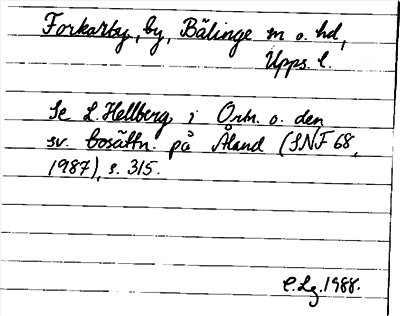 Forkarby, by, Bälinge sn o. hd,
Upps. l.
Se L. Hellberg i Ortn. o. den
sv. bosättn. på Åland (SNF 68,
1987), s. 315.
C. Lg. 1988.